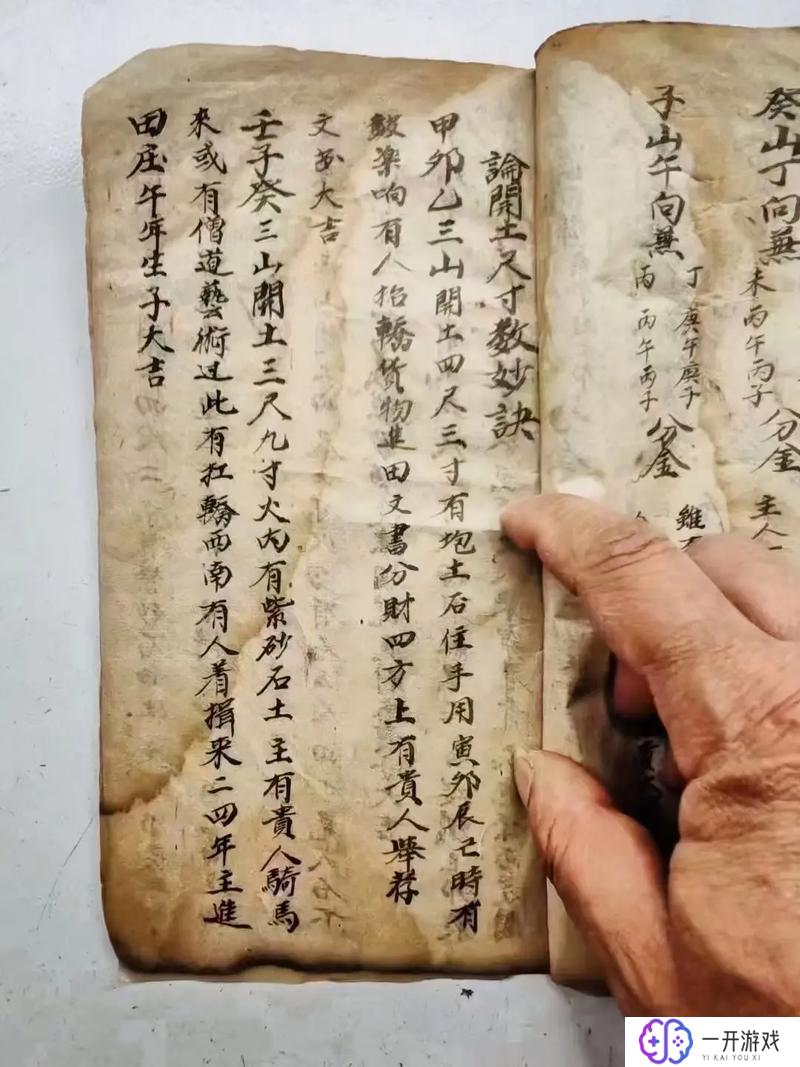 癸山丁向無
未丙午丙子
分金
主人
子山午向無
丁庚午庚子
丙丙午丙子
分金
雖
論開土尺寸数妙訣
甲卯乙三山開土四尺三寸有
土石住手用寅卯辰巳時有
鼓楽响有人抬轎貨物進田文書分財四方上有貴人舉荐
文
大吉
壬子癸三山開土三尺九寸火内有紫砂石土主有貴人騎馬
来或有僧道藝術过此有扛轎西南有人着揖来二四年主進
田庄午年生子大吉
一开游戏
YI KAI YOU XI